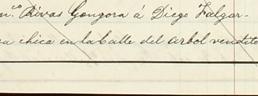 n.co Rivas Gongora á Diego Falgar-
ra chica en la Calle del arbol vendito